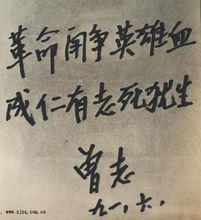 革命闹争英雄血
成仁有志死犹生
曾志
九一.六.
www.zjsr.cne.cn